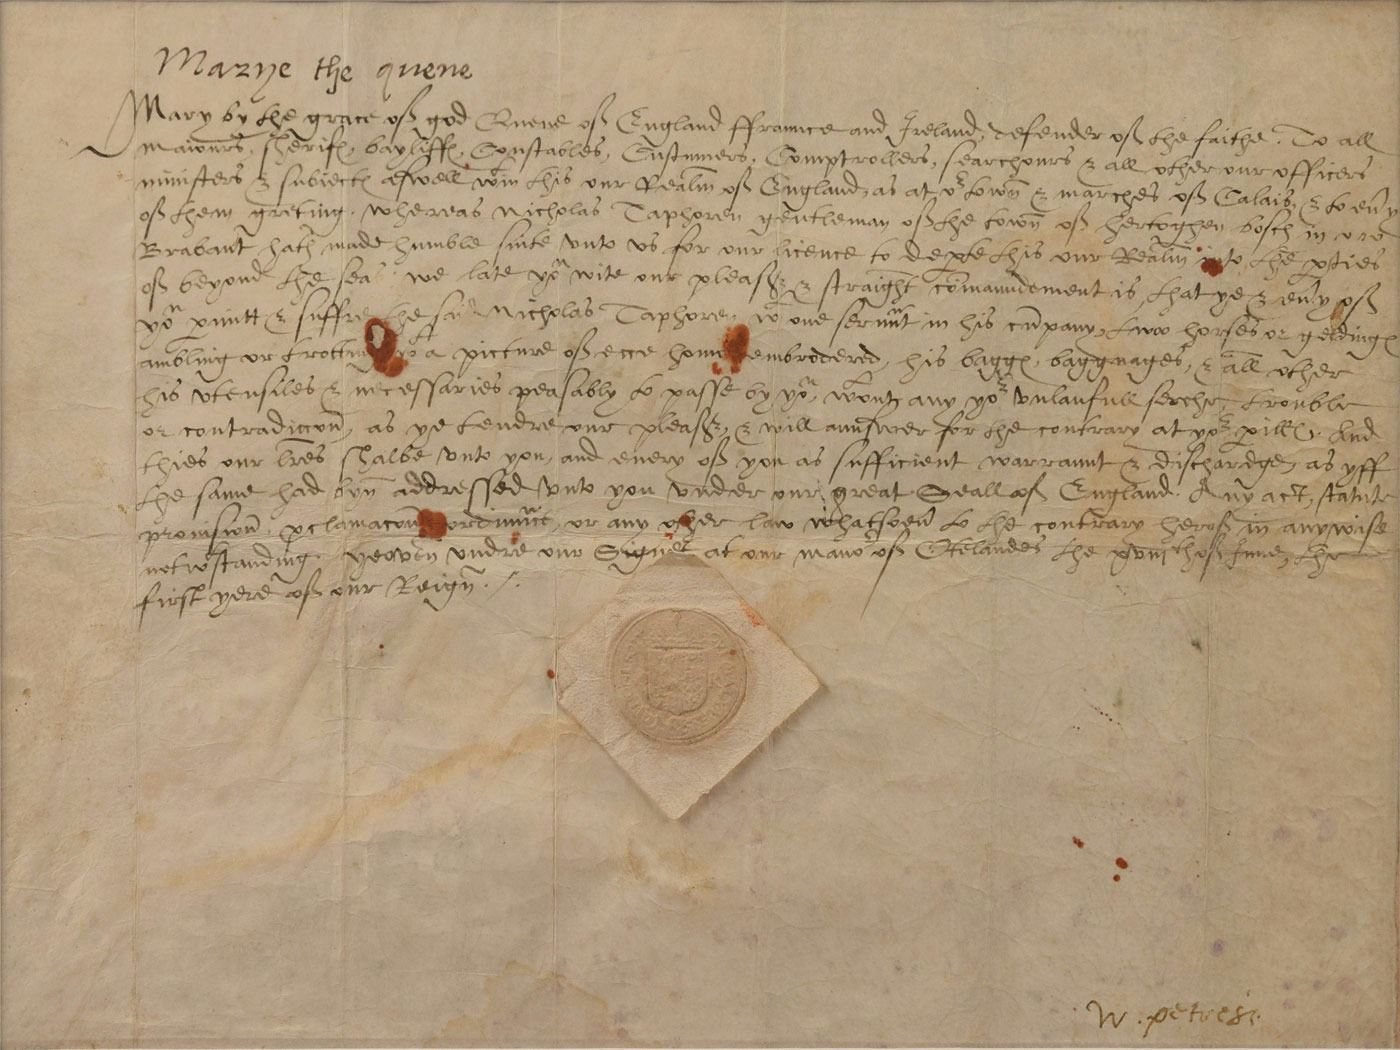 Marye the quene
Mary by the grace off god Quene off England ffraunce and Ireland, defender off the faithe. To all
maiours, Sherifs, bayliffs, Constables, Customers, Comptrollers, searchours & all other our officers
ministers & subiects aswell wtin this our Realm off England, as at or town & marches off Calais, & to eny
off them greting. whereas Nicholas Taphoren gentleman off the town off hertoghen bosch in
Brabant, hath made humble sute vnto vs for our licence to depte this our Realm into the pties
off beyond the seas we late you wite our pleasr & straight commaundement is, that ye & eny off
you pmitt & suffre the said Nicholas Taphoren, wt one servnt in his cumpany, two horses or geldings
ambling or trotting wt a picture off ecce homo embrodered, his baggs, baggnages, & all other
his vtensiles & necessaries peasably to passe by you, wtout any yor vnlaufull serche, trouble
or contradiccon, as ye tendre our pleasr, & will aunswer for the contrary at yor pills. And
thies our lres shalbe vnto you, and euery off you as sufficient warraunt & dischardge, as yff
the same had byn addressed vnto you vnder our great Seall off England. Any act, statute
prouision, pclamacon, ordinnce, or any other law whatsoeu to the contrary heroff in anywise
notwtstanding. yeoven vndre our Signet at our mano off Otelandes the off June, the
first yere off our Reign.
W. petre